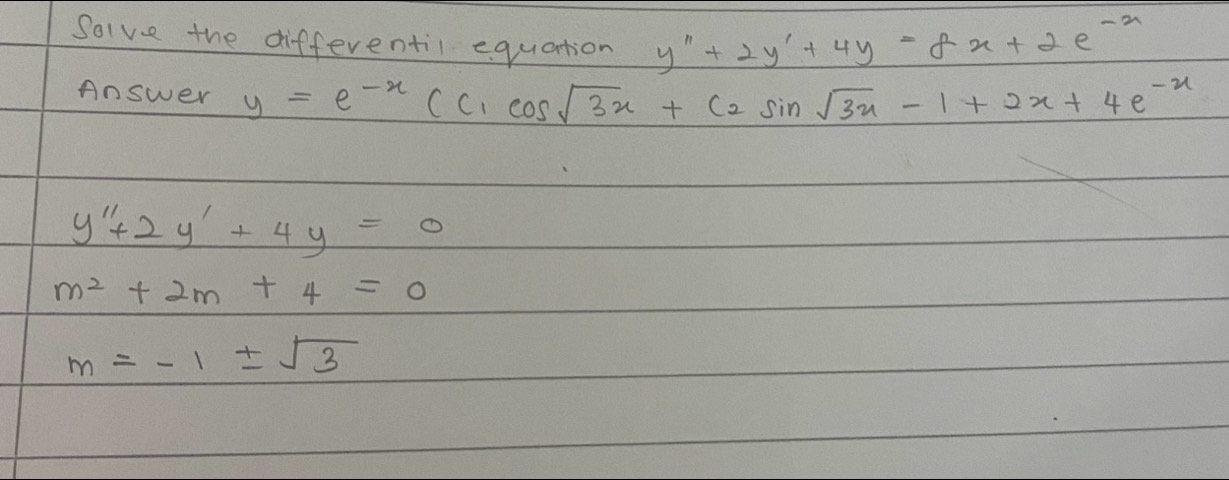 Solve the differentil equation y" + 2y' + 4y = 8x + 2e^-x
Answer y = e^-x (C1 cos√3x + C2 sin √3x - 1 + 2x + 4e^-x
y" + 2y' + 4y = 0
m² + 2m + 4 = 0
m = -1 ± √3